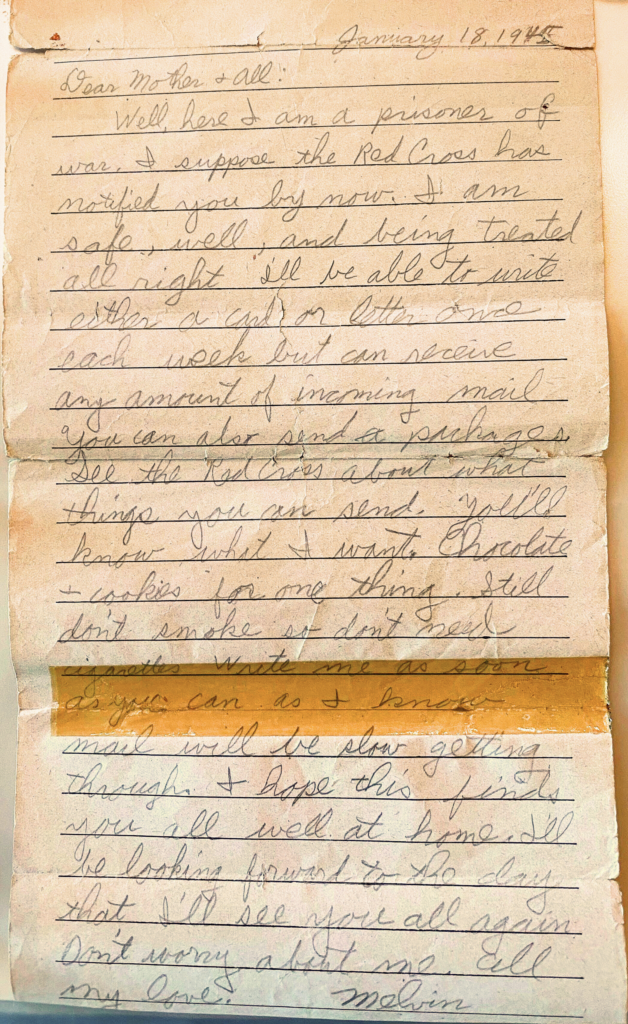 January 18, 1945
Dear Mother & all:
Well, here I am a prisoner of
war. I suppose the Red Cross has
notified you by now. I am
safe, well, and being treated
all right I'll be able to write
either a card or letter once
each week but can receive
any amount of incoming mail
You can also send packages.
See the Red Cross about what
things you can send. You'll
know what I want. Chocolate
& cookies for one thing. Still
don't smoke so don't need
cigarettes Write me as soon
as you can as I know
mail will be slow getting
through. I hope this finds
you all well at home. I'll
be looking forward to the day
that I'll see you all again
Don't worry about me. All
my love. Melvin